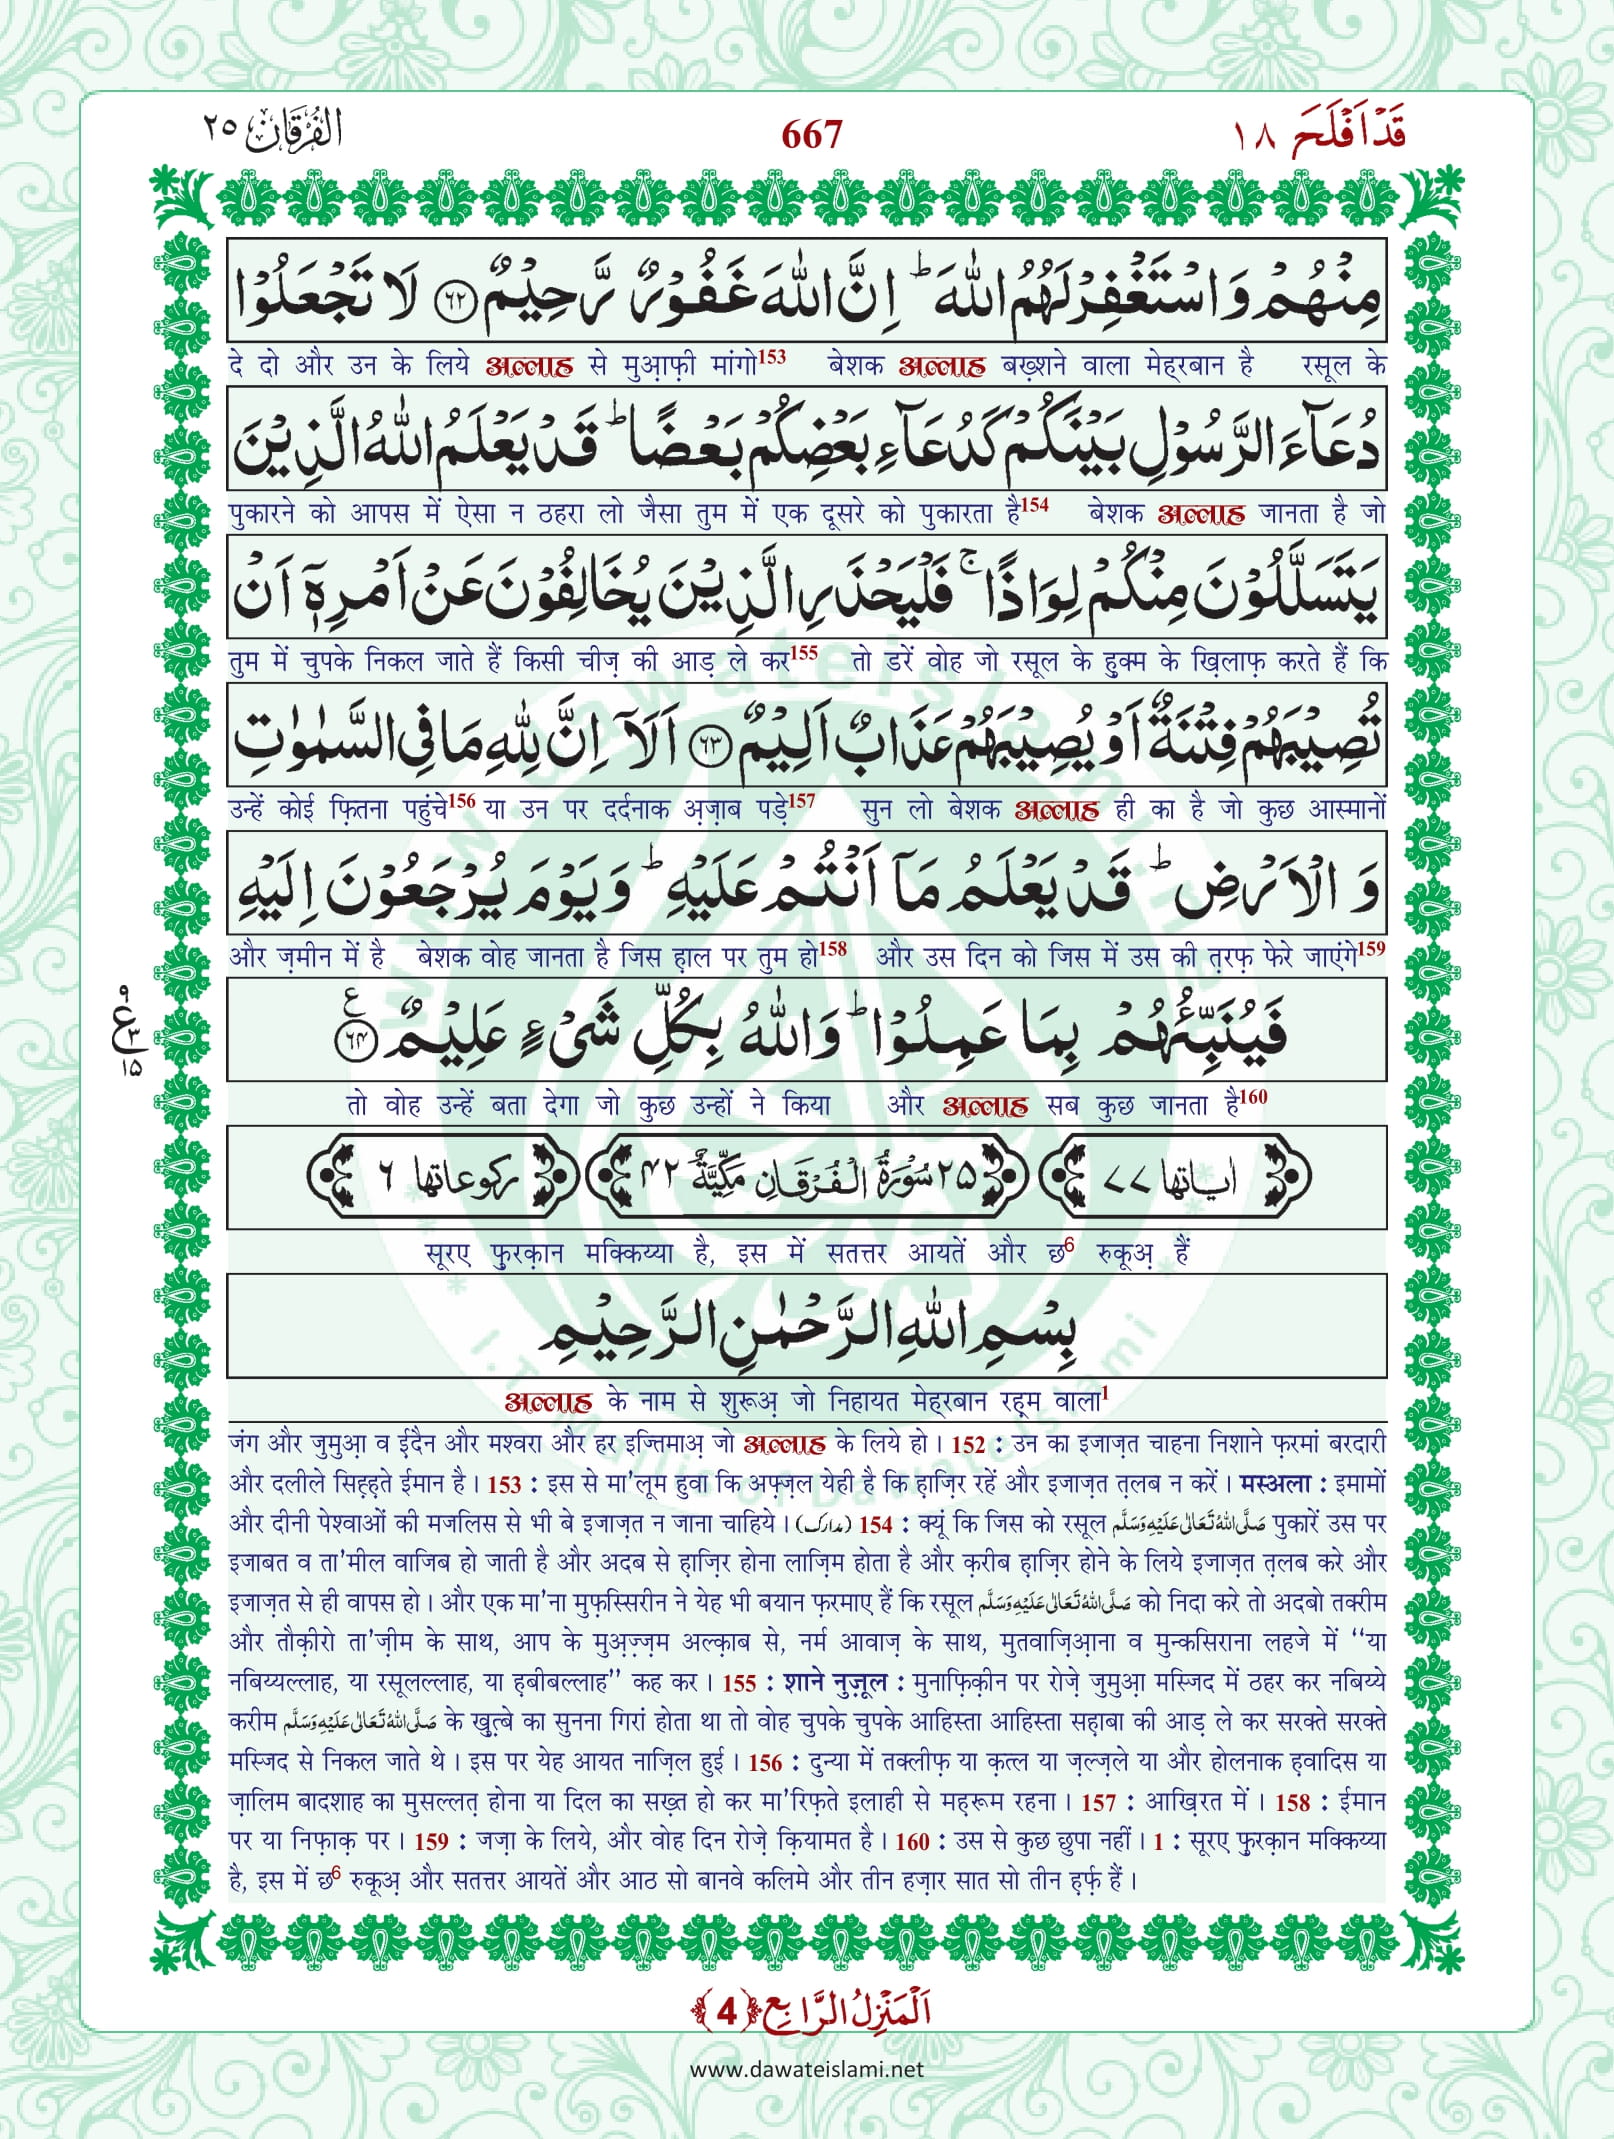 قَدْ اَفْلَحَ ١٨
667
الفُرقَان ٢٥
مِنْهُمْ وَاسْتَغْفِرْ لَهُمُ اللّٰهَ ؕ اِنَّ اللّٰهَ غَفُوْرٌ رَّحِيْمٌ ﴿۶۲﴾ لَا تَجْعَلُوْا
दे दो और उन के लिये अल्लाह से मुआ़फ़ी मांगो153 बेशक अल्लाह बख़्शने वाला मेह्रबान है रसूल के
دُعَآءَ الرَّسُوْلِ بَيْنَكُمْ كَدُعَآءِ بَعْضِكُمْ بَعْضًا ؕ قَدْ يَعْلَمُ اللّٰهُ الَّذِيْنَ
पुकारने को आपस में ऐसा न ठहरा लो जैसा तुम में एक दूसरे को पुकारता है154 बेशक अल्लाह जानता है जो
يَتَسَلَّلُوْنَ مِنْكُمْ لِوَاذًا ۚ فَلْيَحْذَرِ الَّذِيْنَ يُخَالِفُوْنَ عَنْ اَمْرِهٖۤ اَنْ
तुम में चुपके निकल जाते हैं किसी चीज़ की आड़ ले कर155 तो डरें वोह जो रसूल के हुक्म के ख़िलाफ़ करते हैं कि
تُصِيْبَهُمْ فِتْنَةٌ اَوْ يُصِيْبَهُمْ عَذَابٌ اَلِيْمٌ ﴿۶۳﴾ اَلَاۤ اِنَّ لِلّٰهِ مَا فِي السَّمٰوٰتِ
उन्हें कोई फ़ितना पहुंचे156 या उन पर दर्दनाक अ़ज़ाब पड़े157 सुन लो बेशक अल्लाह ही का है जो कुछ आस्मानों
وَ الْاَرْضِ ؕ قَدْ يَعْلَمُ مَاۤ اَنْتُمْ عَلَيْهِ ؕ وَيَوْمَ يُرْجَعُوْنَ اِلَيْهِ
और ज़मीन में है बेशक वोह जानता है जिस ह़ाल पर तुम हो158 और उस दिन को जिस में उस की त़रफ़ फेरे जाएंगे159
فَيُنَبِّئُهُمْ بِمَا عَمِلُوْا ؕ وَاللّٰهُ بِكُلِّ شَيْءٍ عَلِيْمٌ ﴿۶۴﴾ ع
۹ ع ۳ ۱۵
तो वोह उन्हें बता देगा जो कुछ उन्हों ने किया और अल्लाह सब कुछ जानता है160
اياتها ٧٧ ٢٥ سُوْرَةُ الْفُرْقَانِ مَكِّيَّةٌ ٤٢ ركوعاتها ٦
सूरए फ़ुरक़ान मक्किय्या है, इस में सतत्तर आयतें और छ6 रुकूअ़ हैं
بِسْمِ اللّٰهِ الرَّحْمٰنِ الرَّحِيْمِ
अल्लाह के नाम से शुरूअ़ जो निहायत मेह्रबान रह़्म वाला1
जंग और जुमुआ़ व ई़दैन और मश्वरा और हर इज्तिमाअ़ जो अल्लाह के लिये हो। 152 : उन का इजाज़त चाहना निशाने फ़रमां बरदारी
और दलीले सिह़्ह़ते ईमान है। 153 : इस से मा'लूम हुवा कि अफ़्ज़ल येही है कि ह़ाज़िर रहें और इजाज़त त़लब न करें। मस्अला : इमामों
और दीनी पेश्वाओं की मजलिस से भी बे इजाज़त न जाना चाहिये। (مدارک) 154 : क्यूं कि जिस को रसूल صَلَّى اللهُ تَعَالٰى عَلَيْهِ وَسَلَّم पुकारें उस पर
इजाबत व ता'मील वाजिब हो जाती है और अदब से ह़ाज़िर होना लाज़िम होता है और क़रीब ह़ाज़िर होने के लिये इजाज़त त़लब करे और
इजाज़त से ही वापस हो। और एक मा'ना मुफ़स्सिरीन ने येह भी बयान फ़रमाए हैं कि रसूल صَلَّى اللهُ تَعَالٰى عَلَيْهِ وَسَلَّم को निदा करे तो अदबो तक्रीम
और तौक़ीरो ता'ज़ीम के साथ, आप के मुअ़ज़्ज़म अल्क़ाब से, नर्म आवाज़ के साथ, मुतवाज़िआ़ना व मुन्कसिराना लहजे में "या
नबिय्यल्लाह, या रसूलल्लाह, या ह़बीबल्लाह" कह कर। 155 : शाने नुज़ूल : मुनाफ़िक़ीन पर रोज़े जुमुआ़ मस्जिद में ठहर कर नबिय्ये
करीम صَلَّى اللهُ تَعَالٰى عَلَيْهِ وَسَلَّم के ख़ुत़्बे का सुनना गिरां होता था तो वोह चुपके चुपके आहिस्ता आहिस्ता सह़ाबा की आड़ ले कर सरक्ते सरक्ते
मस्जिद से निकल जाते थे। इस पर येह आयत नाज़िल हुई। 156 : दुन्या में तक्लीफ़ या क़त्ल या ज़ल्ज़ले या और होलनाक ह़वादिस या
ज़ालिम बादशाह का मुसल्लत़ होना या दिल का सख़्त हो कर मा'रिफ़ते इलाही से मह़रूम रहना। 157 : आख़िरत में। 158 : ईमान
पर या निफ़ाक़ पर। 159 : जज़ा के लिये, और वोह दिन रोज़े क़ियामत है। 160 : उस से कुछ छुपा नहीं। 1 : सूरए फ़ुरक़ान मक्किय्या
है, इस में छ6 रुकूअ़ और सतत्तर आयतें और आठ सो बानवे कलिमे और तीन हज़ार सात सो तीन ह़र्फ़ हैं।
اَلْمَنْزِلُ الرَّابِع ﴿4﴾
www.dawateislami.net